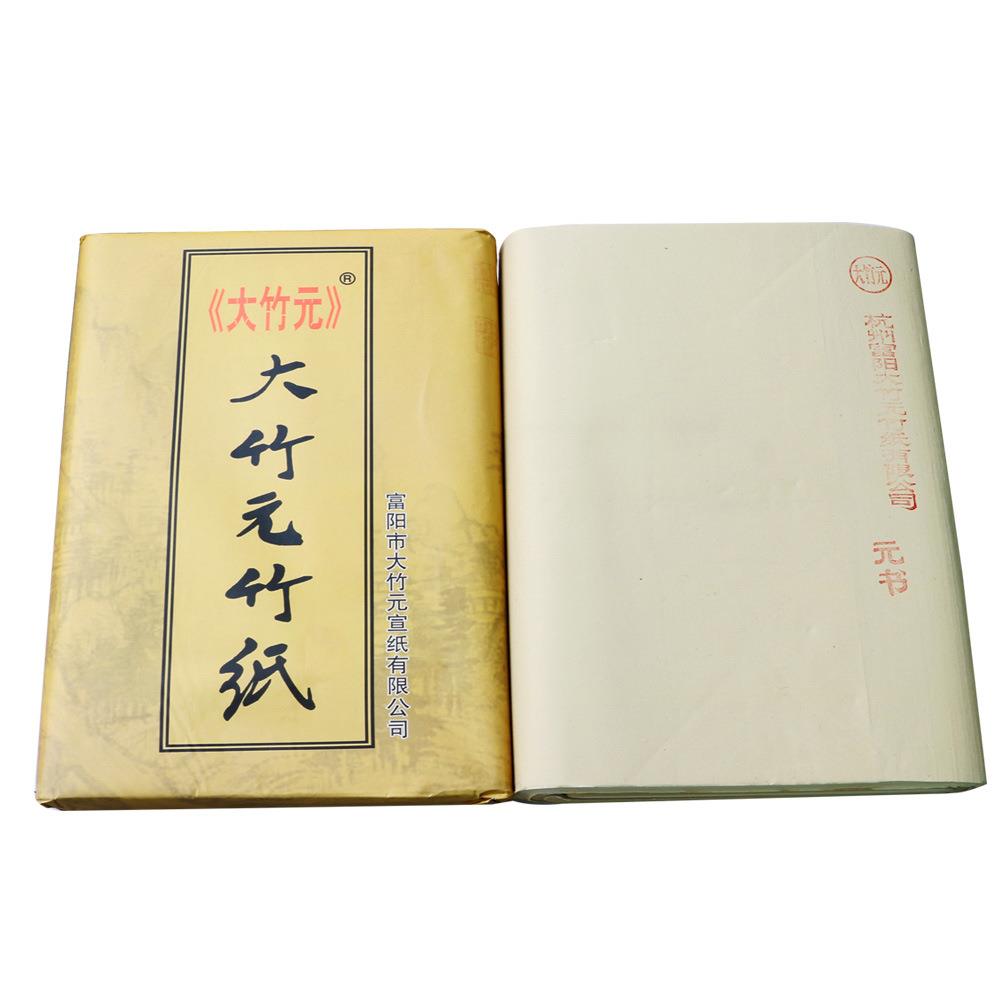 《大竹元》®
大竹元竹纸
富阳市大竹元宣纸有限公司
大竹元
杭州富阳大竹元竹纸有限公司
元书